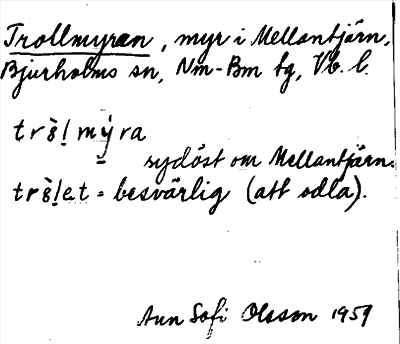 Trollmyran, myr i Mellantjärn,
Bjurholms sn, Nm-Bm tg, Vb. l.
myra
sydöst om Mellantjärn.
= besvärlig (att odla).
Ann Sofi Olsson 1959